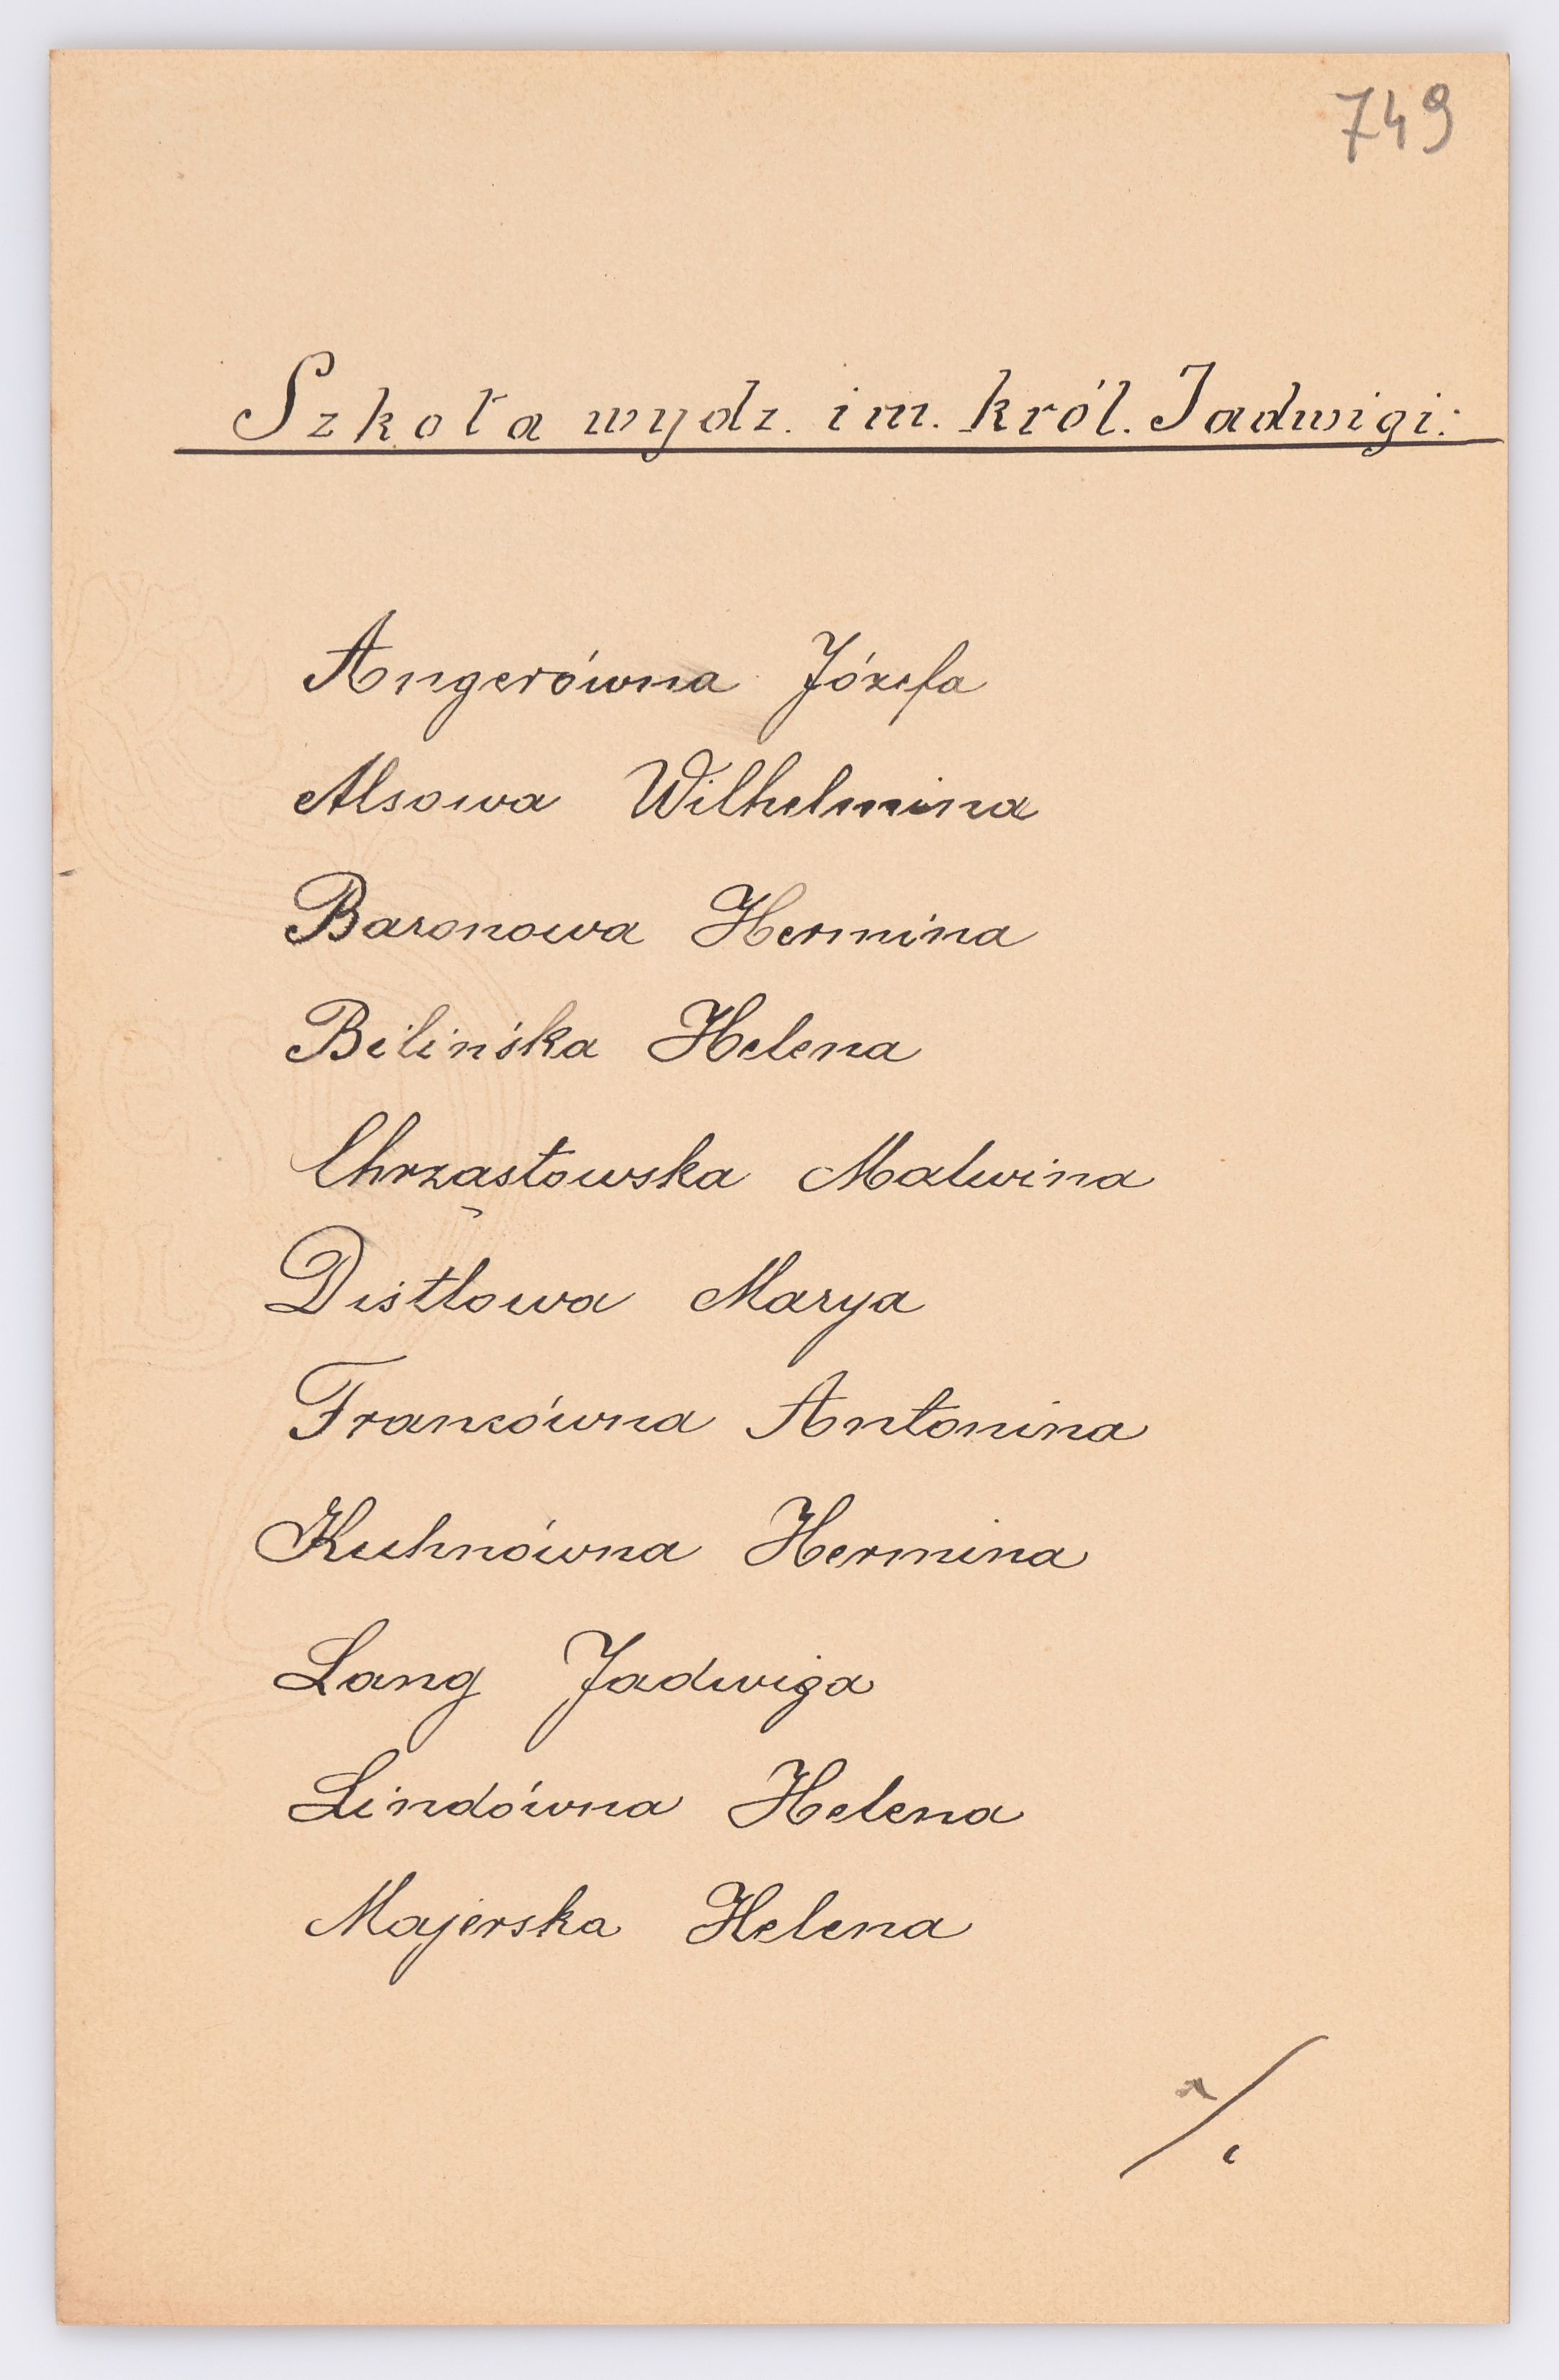 749
Szkoła wydz. im. król. Jadwigi:
Angerówna Józefa
Alsowa Wilhelmina
Baronowa Hermina
Bilińska Helena
Chrząstowska Malwina
Distlowa Marya
Franzówna Antonina
Kuhnówna Hermina
Lang Jadwiga
Lindówna Helena
Majerska Helena